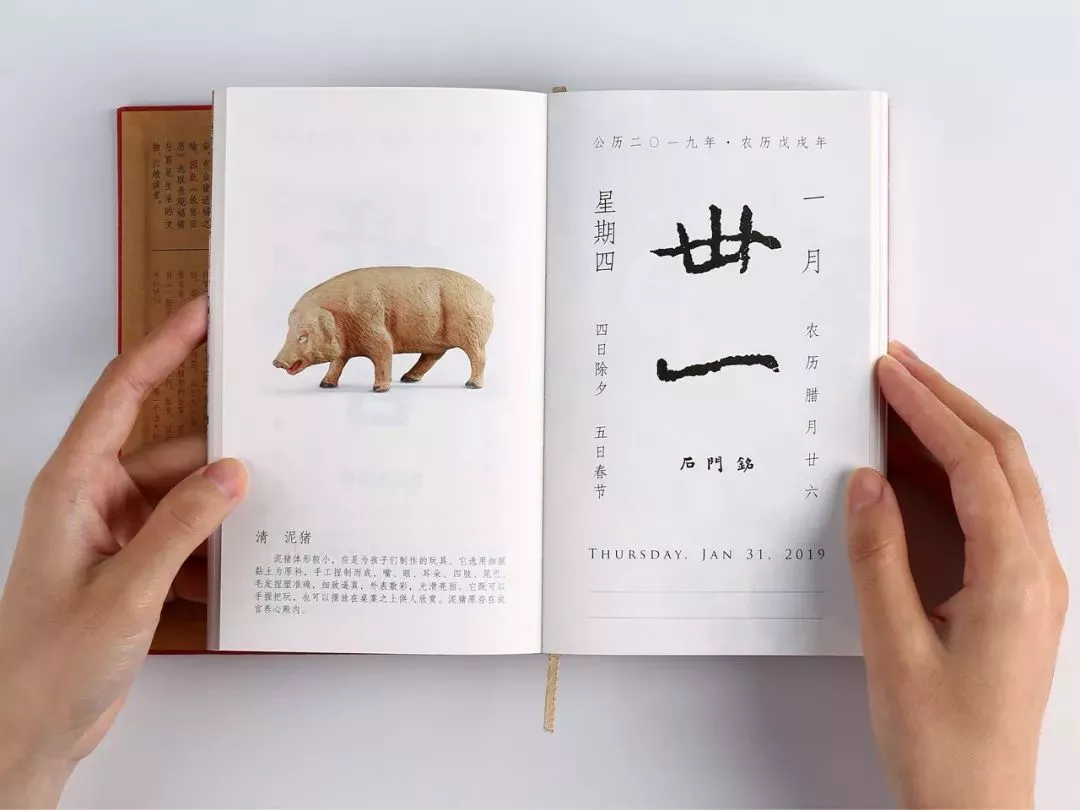 清 泥猪
泥猪体形较小，应是为孩子们制作的玩具。它选用细腻
黏土为原料，手工捏制而成，嘴、眼、耳朵、四肢、尾巴、
毛发捏塑准确，细致逼真，外表敷彩，光滑亮丽。它既可以
手握把玩，也可以摆放在桌案之上供人欣赏。泥猪原存在故
宫养心殿内。
公历二〇一九年·农历戊戌年
一月
农历腊月廿六
卅一
石門銘
星期四
四日除夕 五日春节
THURSDAY, JAN 31, 2019